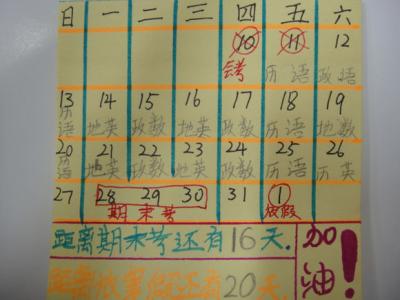 日 一 二 三 四 五 六
10 11 12
会考 历语 政语
13 14 15 16 17 18 19
历语 地英 政数 地英 政数 历语 地英
20 21 22 23 24 25 26
历语 地英 政数 地英 政数 历语 历英
27 28 29 30 31 1
期末考 放假
距离期末考还有16天.
距离放寒假还有20天.
加油!